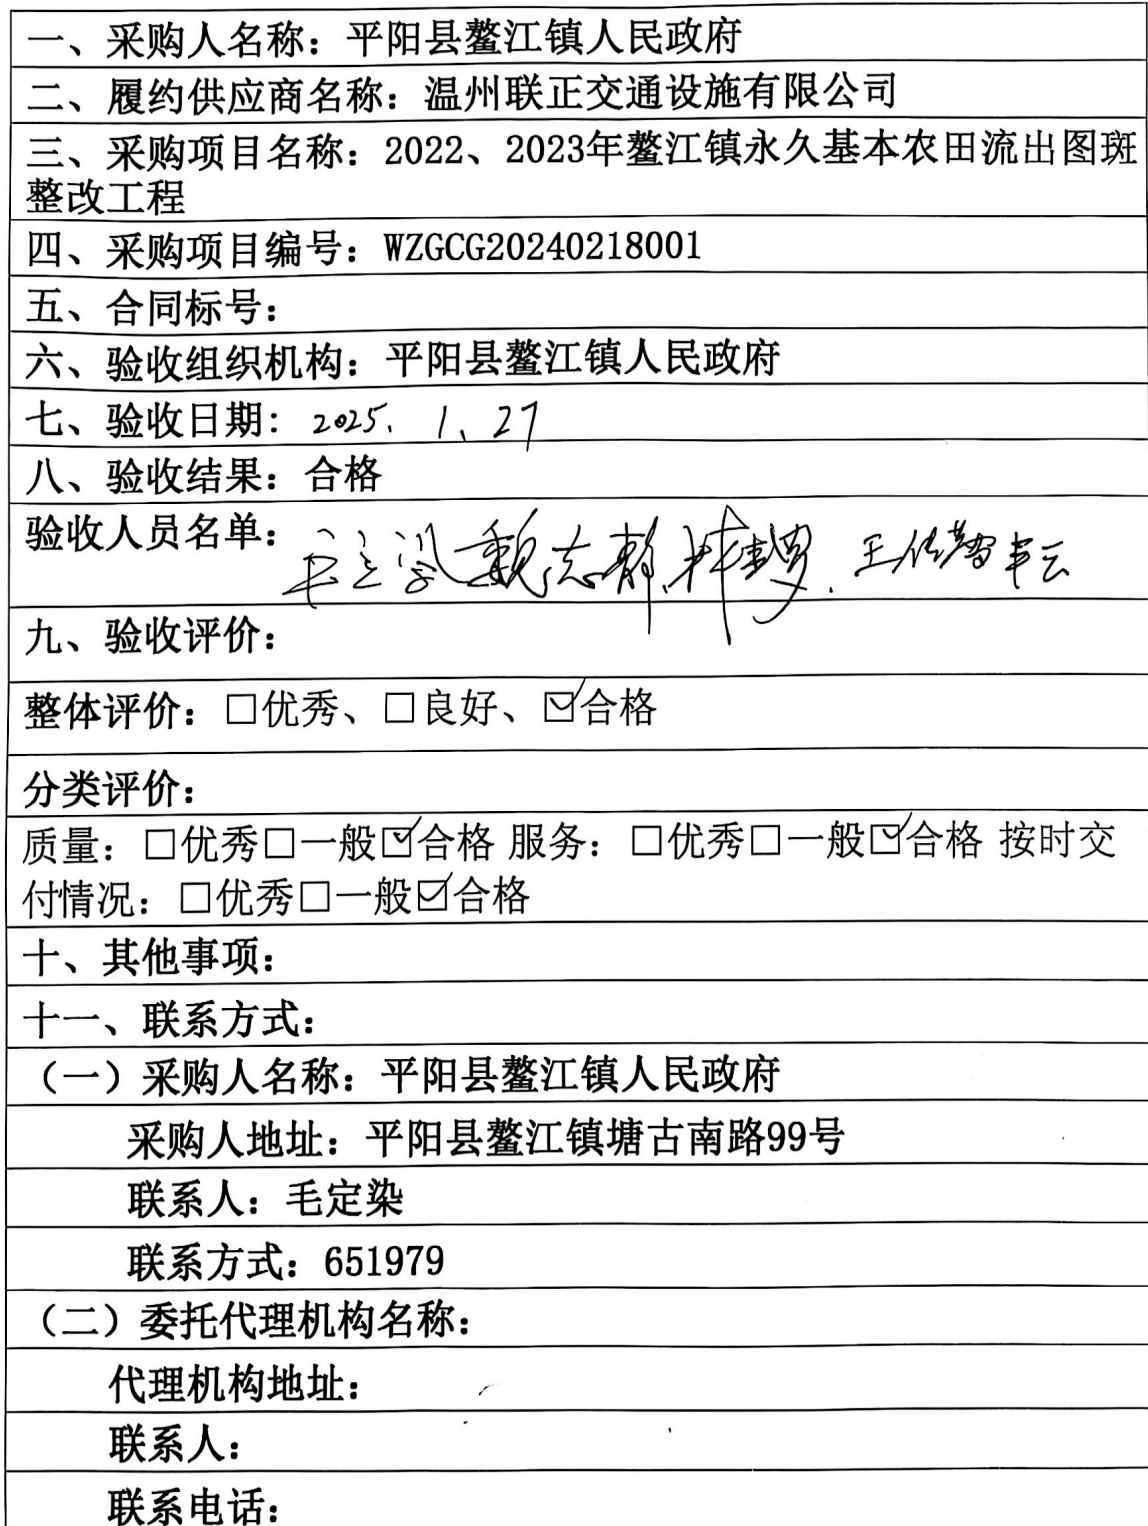 一、采购人名称：平阳县鳌江镇人民政府
二、履约供应商名称：温州联正交通设施有限公司
三、采购项目名称：2022、2023年鳌江镇永久基本农田流出图斑
整改工程
四、采购项目编号：WZGCG20240218001
五、合同标号：
六、验收组织机构：平阳县鳌江镇人民政府
七、验收日期：2025.1.27
八、验收结果：合格
验收人员名单：
九、验收评价：
整体评价：□优秀、□良好、☑合格
分类评价：
质量：□优秀□一般☑合格 服务：□优秀□一般☑合格 按时交
付情况：□优秀□一般☑合格
十、其他事项：
十一、联系方式：
（一）采购人名称：平阳县鳌江镇人民政府
采购人地址：平阳县鳌江镇塘古南路99号
联系人：毛定染
联系方式：651979
（二）委托代理机构名称：
代理机构地址：
联系人：
联系电话：